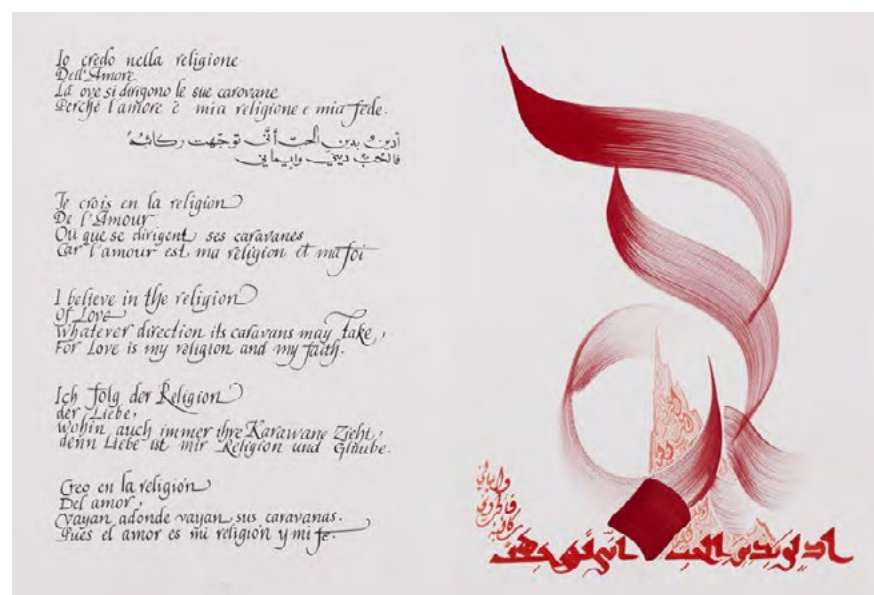 Io credo nella religione
Dell'Amore
Là ove si dirigono le sue carovane
Perché l'amore è mia religione e mia fede.
أدين بدينِ الحبّ أنَّى توجّهت ركائبُهُ
فالحُبّ ديني وإيماني
Je crois en la religion
De l'Amour
Où que se dirigent ses caravanes
Car l'amour est ma religion et ma foi
I believe in the religion
Of Love
Whatever direction its caravans may take,
For Love is my religion and my faith.
Ich folg der Religion
der Liebe,
wohin auch immer ihre Karawane Zieht,
denn Liebe ist mir Religion und Glaube.
Creo en la religión
Del amor,
Vayan adonde vayan sus caravanas.
Pues el amor es mi religión y mi fe.
أدين بدين الحب أنّى توجهت